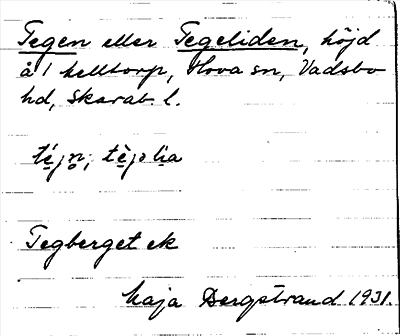 Tegen eller Tegeliden, höjd
å 1 helltorp, Hova sn, Vadsbo
hd, Skarab. l.
Tegberget ek
Maja Bergstrand 1931.